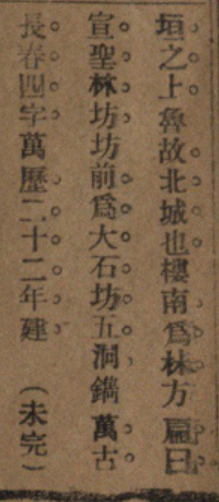 垣之上魯故北城也樓南爲林方扁曰
宣聖林坊坊前爲大石坊五洞鐫萬古
長春四字萬歷二十二年建　(未完)